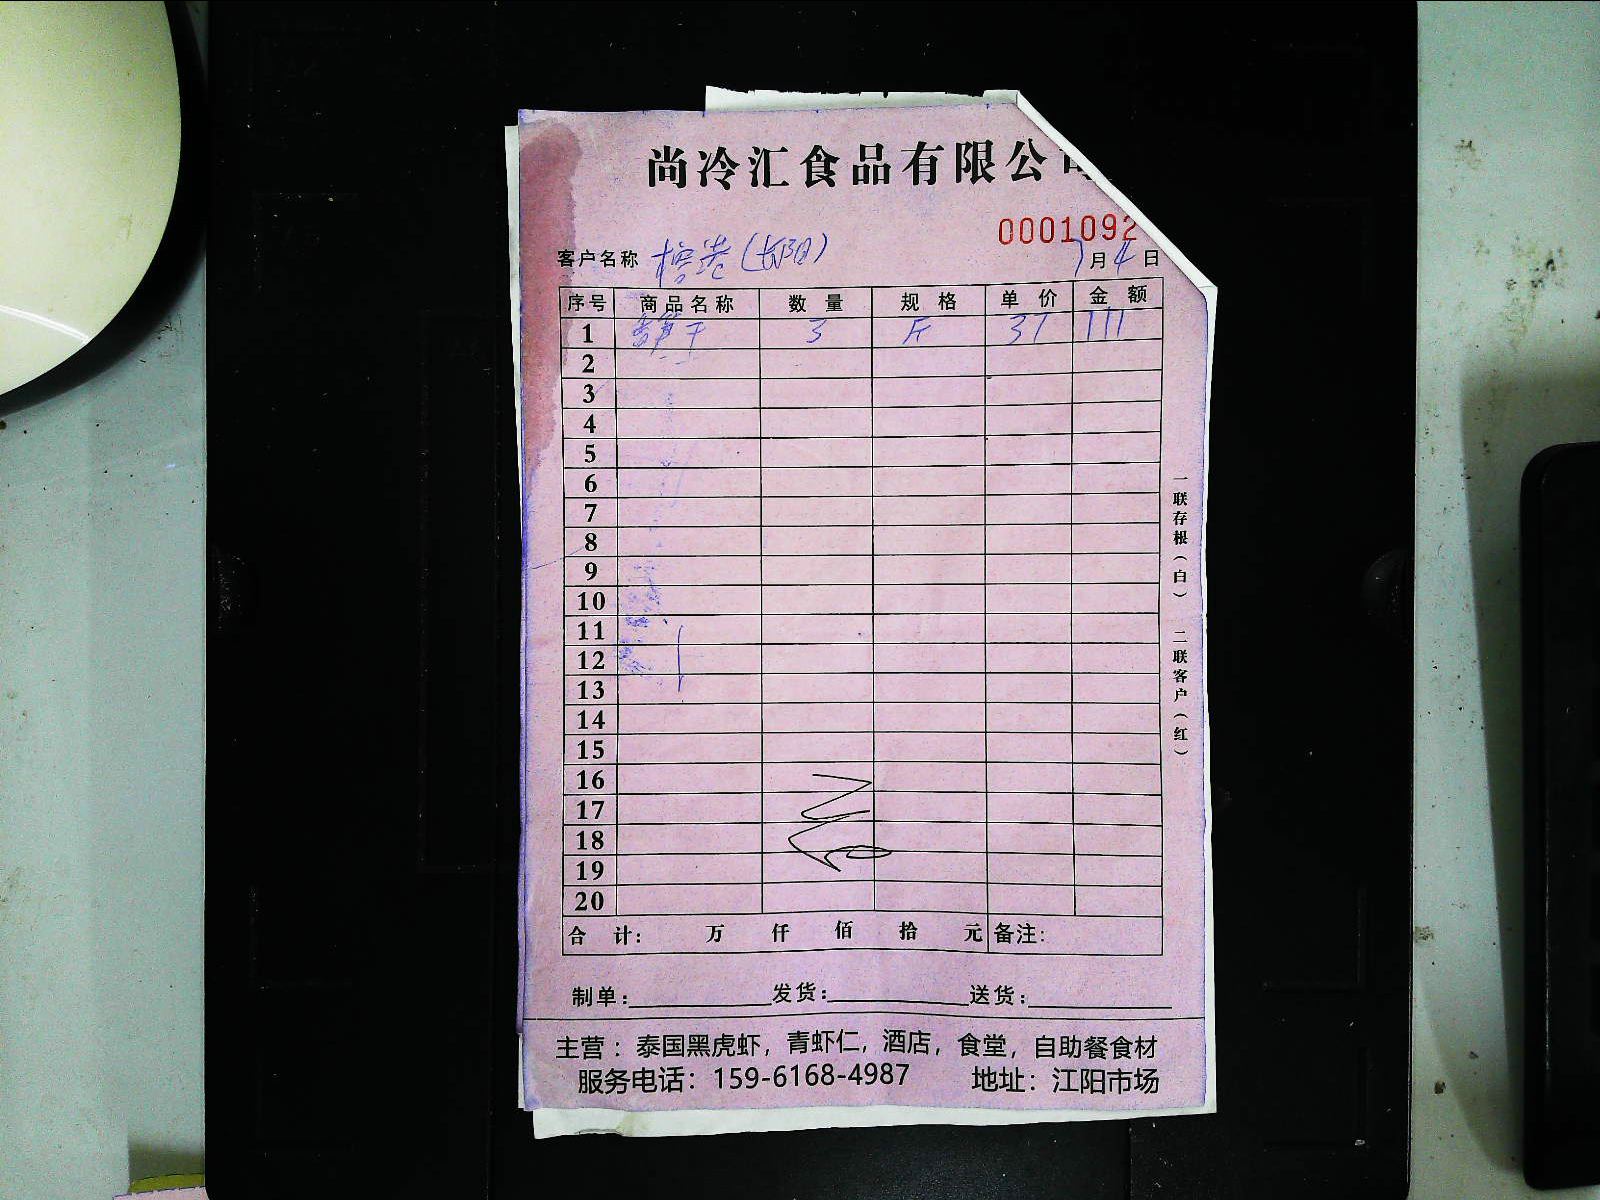 尚冷汇食品有限公司
0001092
客户名称 港(长阳) 7月4日
序号 商品名称 数量 规格 单价 金额
1 笋干 3 斤 37 111
2
3
4
5
6
7
8
9
10
11
12
13
14
15
16
17
18
19
20
合计: 万 仟 佰 拾 元 备注:
制单: 发货: 送货:
主营：泰国黑虎虾，青虾仁，酒店，食堂，自助餐食材
服务电话：159-6168-4987 地址：江阳市场
一联存根(白) 二联客户(红)